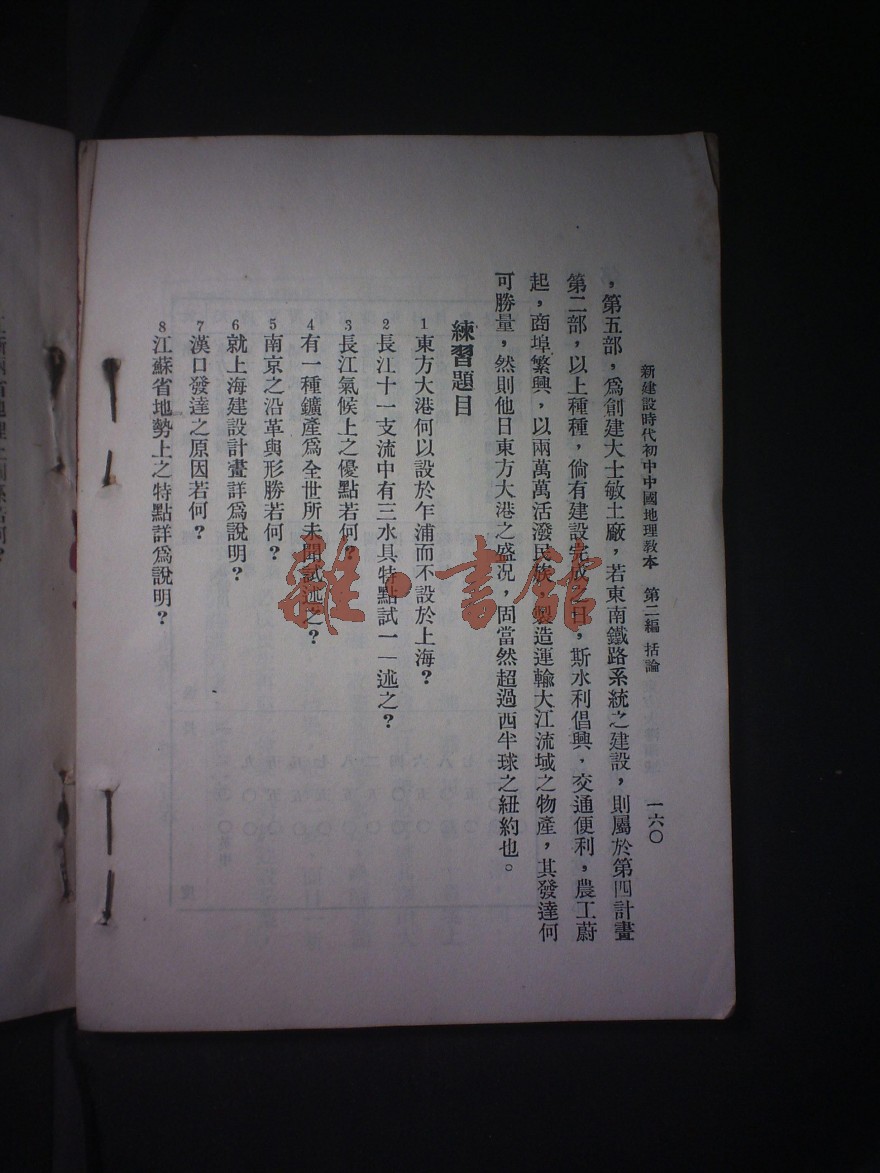 新建設時代初中中國地理教本 第二編 括論 一六〇
，第五部，爲創建大士敏土廠，若東南鐵路系統之建設，則屬於第四計畫
第二部，以上種種，倘有建設完成之日，斯水利倡興，交通便利，農工蔚
起，商埠繁興，以兩萬萬活潑民族，製造運輸大江流域之物產，其發達何
可勝量，然則他日東方大港之盛况，固當然超過西半球之紐約也。
練習題目
1 東方大港何以設於乍浦而不設於上海？
2 長江十一支流中有三水具特點試一一述之？
3 長江氣候上之優點若何？
4 有一種鑛產爲全世所未聞試述之？
5 南京之沿革與形勝若何？
6 就上海建設計畫詳爲說明？
7 漢口發達之原因若何？
8 江蘇省地勢上之特點詳爲說明？
雜·書館